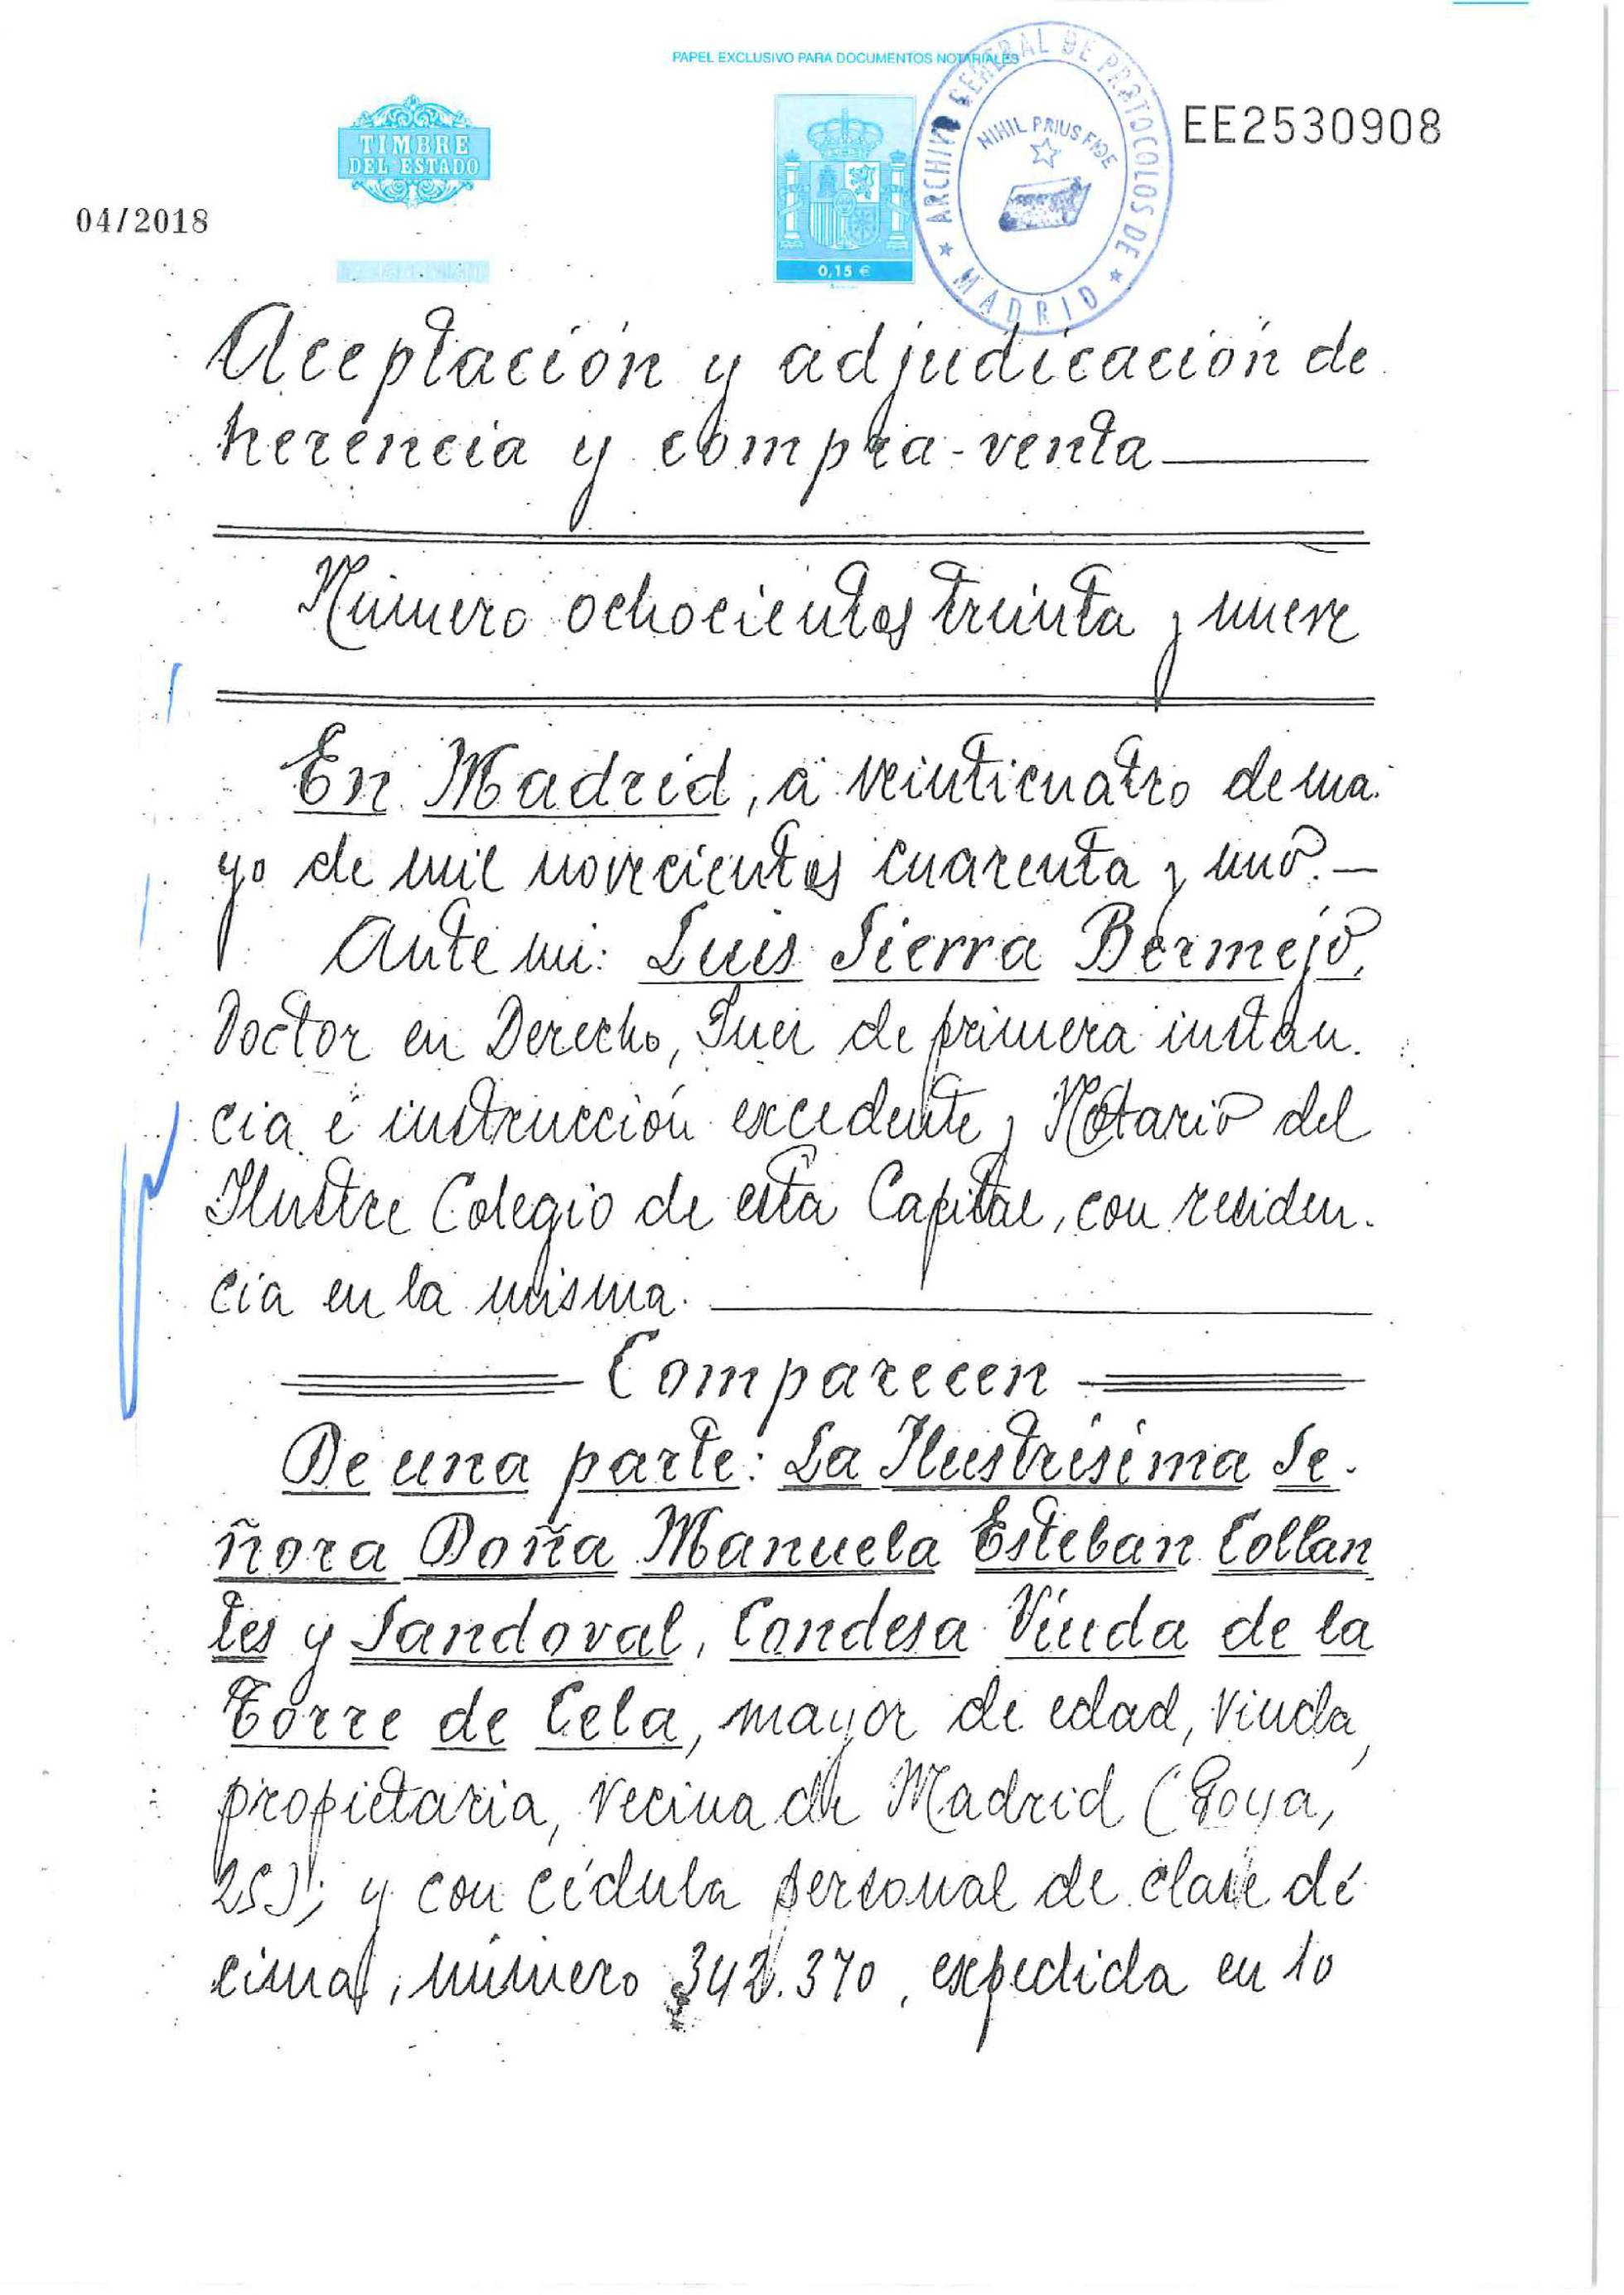 PAPEL EXCLUSIVO PARA DOCUMENTOS NOTARIALES
ARCHIVO GENERAL DE PROTOCOLOS DE
MADRID
NIHIL PRIUS FIDE
EE2530908
TIMBRE
DEL ESTADO
04/2018
0,15 €
Aceptación y adjudicación de
herencia y compra-venta
Número ochocientos treinta y nueve
En Madrid, a veinticuatro de ma-
yo de mil novecientos cuarenta y uno.
Ante mi: Luis Sierra Bermejo,
Doctor en Derecho, Juez de primera instan-
cia é instrucción excedente y Notario del
Ilustre Colegio de esta Capital, con residen-
cia en la misma.
Comparecen
De una parte: La Ilustrísima Se-
ñora Doña Manuela Esteban Collan
tes y Sandoval, Condesa Viuda de la
Torre de Cela, mayor de edad, viuda,
propietaria, vecina de Madrid (Goya,
25); y con cédula personal de clase dé
cima, número 342.370, expedida en 10